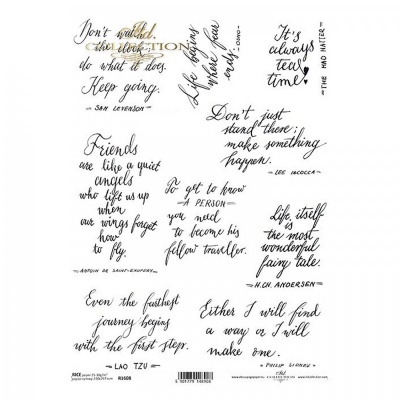 Don't watch
the clock;
do what it does.
Keep going.
- SAM LEVENSON -
itd.
COLLECTION
Life begins
where fear
ends.
- OSHO -
It's
always
tea
time!
- THE MAD HATTER -
Don't just
stand there;
make something
happen.
- LEE IACOCCA
Friends
are like a quiet
angels
who lift us up
when
our wings forget
how
to fly.
- ANTOIN DE SAINT-EXUPERY -
To get to know
- A PERSON -
you need
to become his
fellow traveller.
Life itself
is
the most
wonderful
fairy tale.
- H.CH. ANDERSEN -
Even the farthest
journey begins
with the first step.
- LAO TZU -
Either I will find
a way or I will
make one.
- PHILIP SIDNEY -
RICE
R1608
5 901779 148908
itd.
COLLECTION